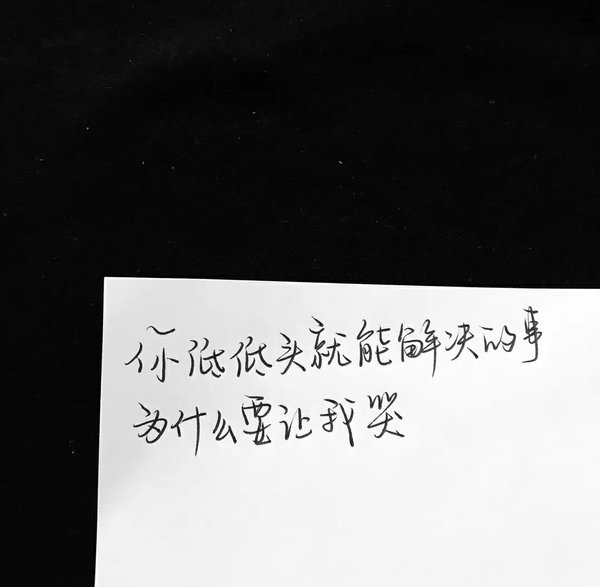 你低低头就能解决的事
为什么要让我哭